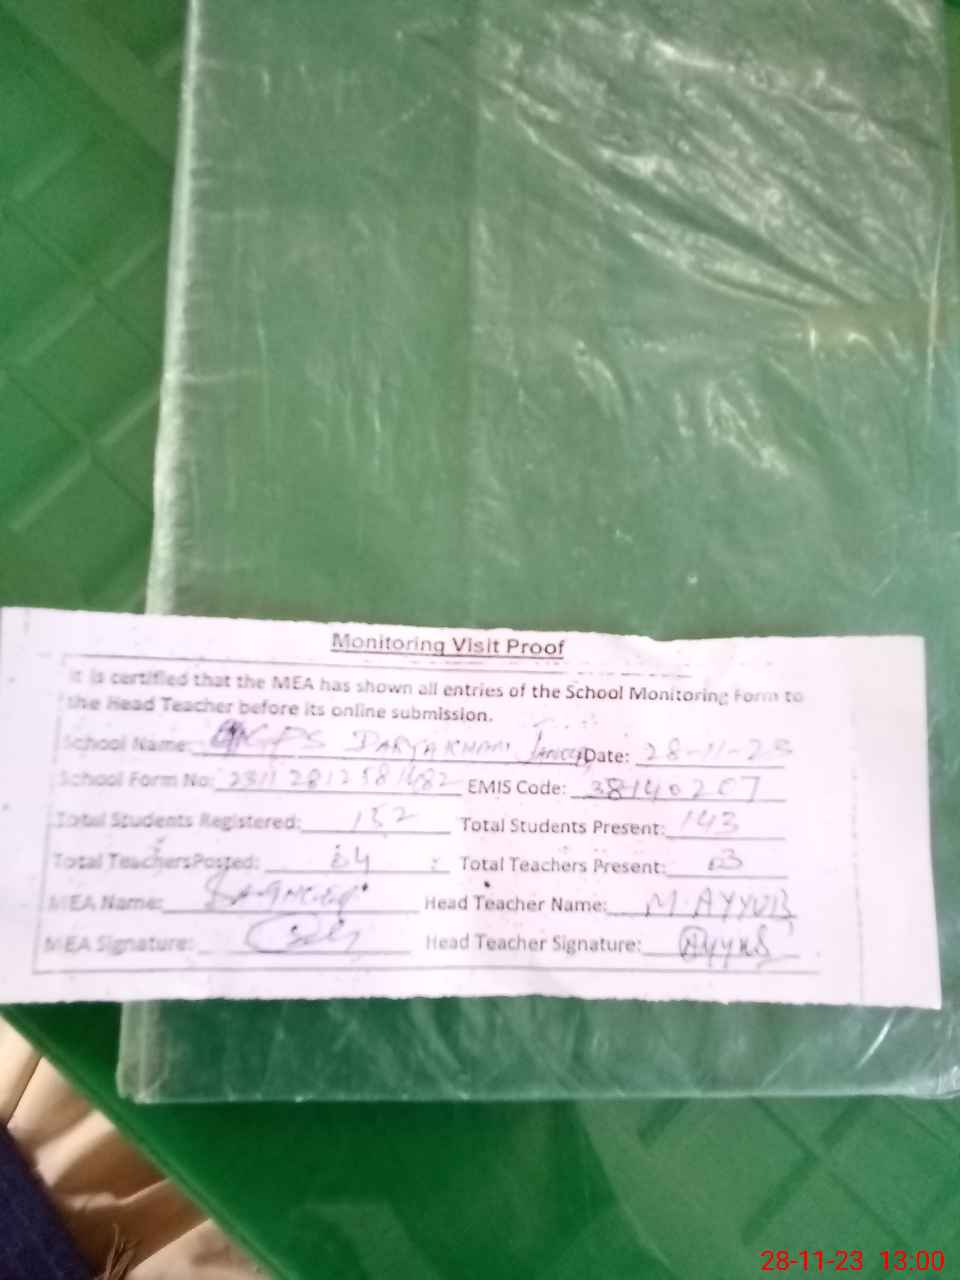 Monitoring Visit Proof
It is certified that the MEA has shown all entries of the School Monitoring Form to
the Head Teacher before its online submission.
School Name: GPS DARYA KHAN Date: 28-11-23
School Form No: EMIS Code: 38140207
Total Students Registered: 152 Total Students Present: 143
Total TeachersPosted: 04 Total Teachers Present: 03
MEA Name: Head Teacher Name: M. AYYUB
MEA Signature: Head Teacher Signature: Ayyub
28-11-23 13:00